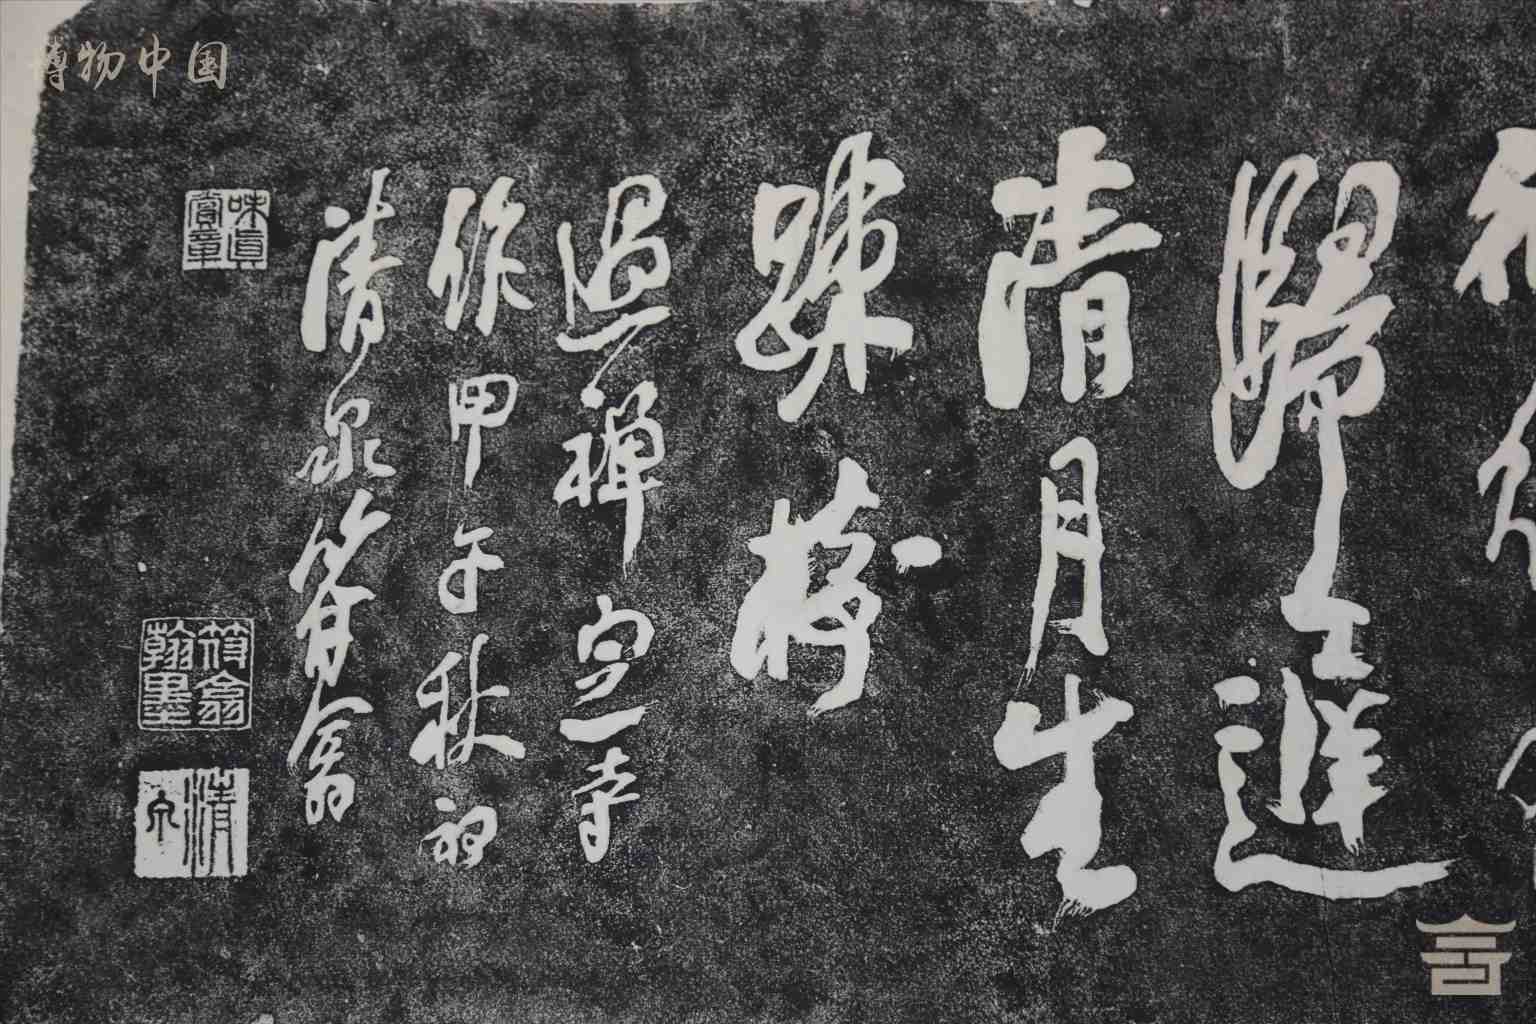 歸遲
清月生
疎樹
過禪定寺
作甲午秋初
清泉符翁
味真
賞章
符翁
翰墨
清
泉
博物中国